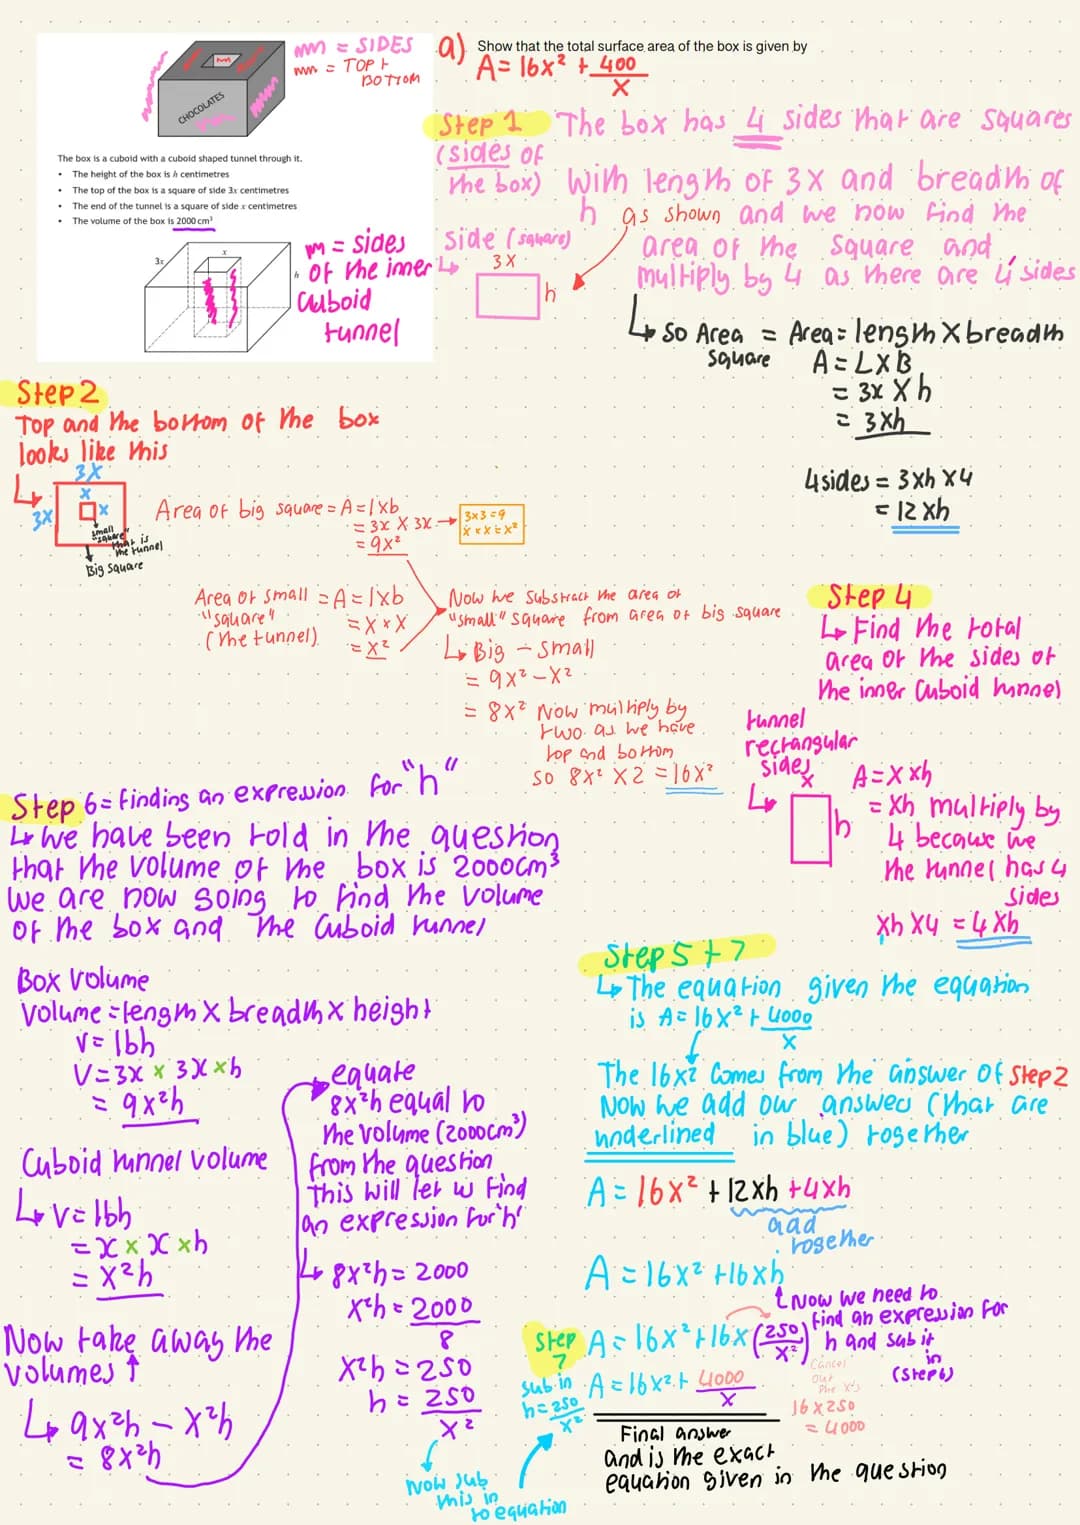 m = SIDES
m = TOP +
BOTTOM
CHOCOLATES
The box is a cuboid with a cuboid shaped tunnel through it.
• The height of the box is h centimetres
• The top of the box is a square of side 3x centimetres
• The end of the tunnel is a square of side x centimetres
• The volume of the box is 2000 cm³
3x
x
h
m = sides
of the inner
cuboid
tunnel
a) Show that the total surface area of the box is given by
A = 16x² + 400/x
Step 1 The box has 4 sides that are squares
(sides of
the box) with length of 3x and breadth of
h as shown and we now find the
area of the square and
multiply by 4 as there are 4 sides
side (square)
3x
h
so Area square = Area = length x breadth
A = L x B
= 3x x h
= 3xh
4 sides = 3xh x 4
= 12xh
Step 2
Top and the bottom of the box
looks like this
3x
x
3x
x
small
"square"
that is
the tunnel
Big square
Area of big square = A = l x b
= 3x x 3x → 3x3=9
x × x = x²
= 9x²
Area of small = A = l x b
"square"
(the tunnel)
= x × x
= x²
Now we substract the area of
"small" square from area of big square
Big - small
= 9x² - x²
= 8x² Now multiply by
two as we have
top and bottom
so 8x² x 2 = 16x²
Step 4
Find the total
area of the sides of
the inner cuboid tunnel
tunnel
rectangular
sides
x
h
A = x x h
= xh multiply by
4 because we
the tunnel has 4
sides
xh x 4 = 4xh
Step 6 = finding an expression for "h"
we have been told in the question
that the volume of the box is 2000cm³
we are now going to find the volume
of the box and the cuboid tunnel
Box volume
Volume = length x breadth x height
v = lbh
V = 3x × 3x × h
= 9x²h
Cuboid tunnel volume
v = lbh
= x × x × h
= x²h
Now take away the
volumes ↑
9x²h - x²h
= 8x²h
equate
8x²h equal to
the volume (2000cm³)
from the question
This will let us find
an expression for 'h'
8x²h = 2000
x²h = 2000/8
x²h = 250
h = 250/x²
Now sub
this in
to equation
Step 5 + 7
The equation given the equation
is A = 16x² + 4000/x
The 16x² comes from the answer of step 2
Now we add our answers (that are
underlined in blue) together
A = 16x² + 12xh + 4xh
add
together
A = 16x² + 16xh
Now we need to
find an expression for
h and sub it
in
(step 6)
step
7
sub in
h = 250/x²
A = 16x² + 16x(250/x²)
Cancel
out
the x's
A = 16x² + 4000/x
16 x 250
= 4000
Final answer
and is the exact
equation given in the question